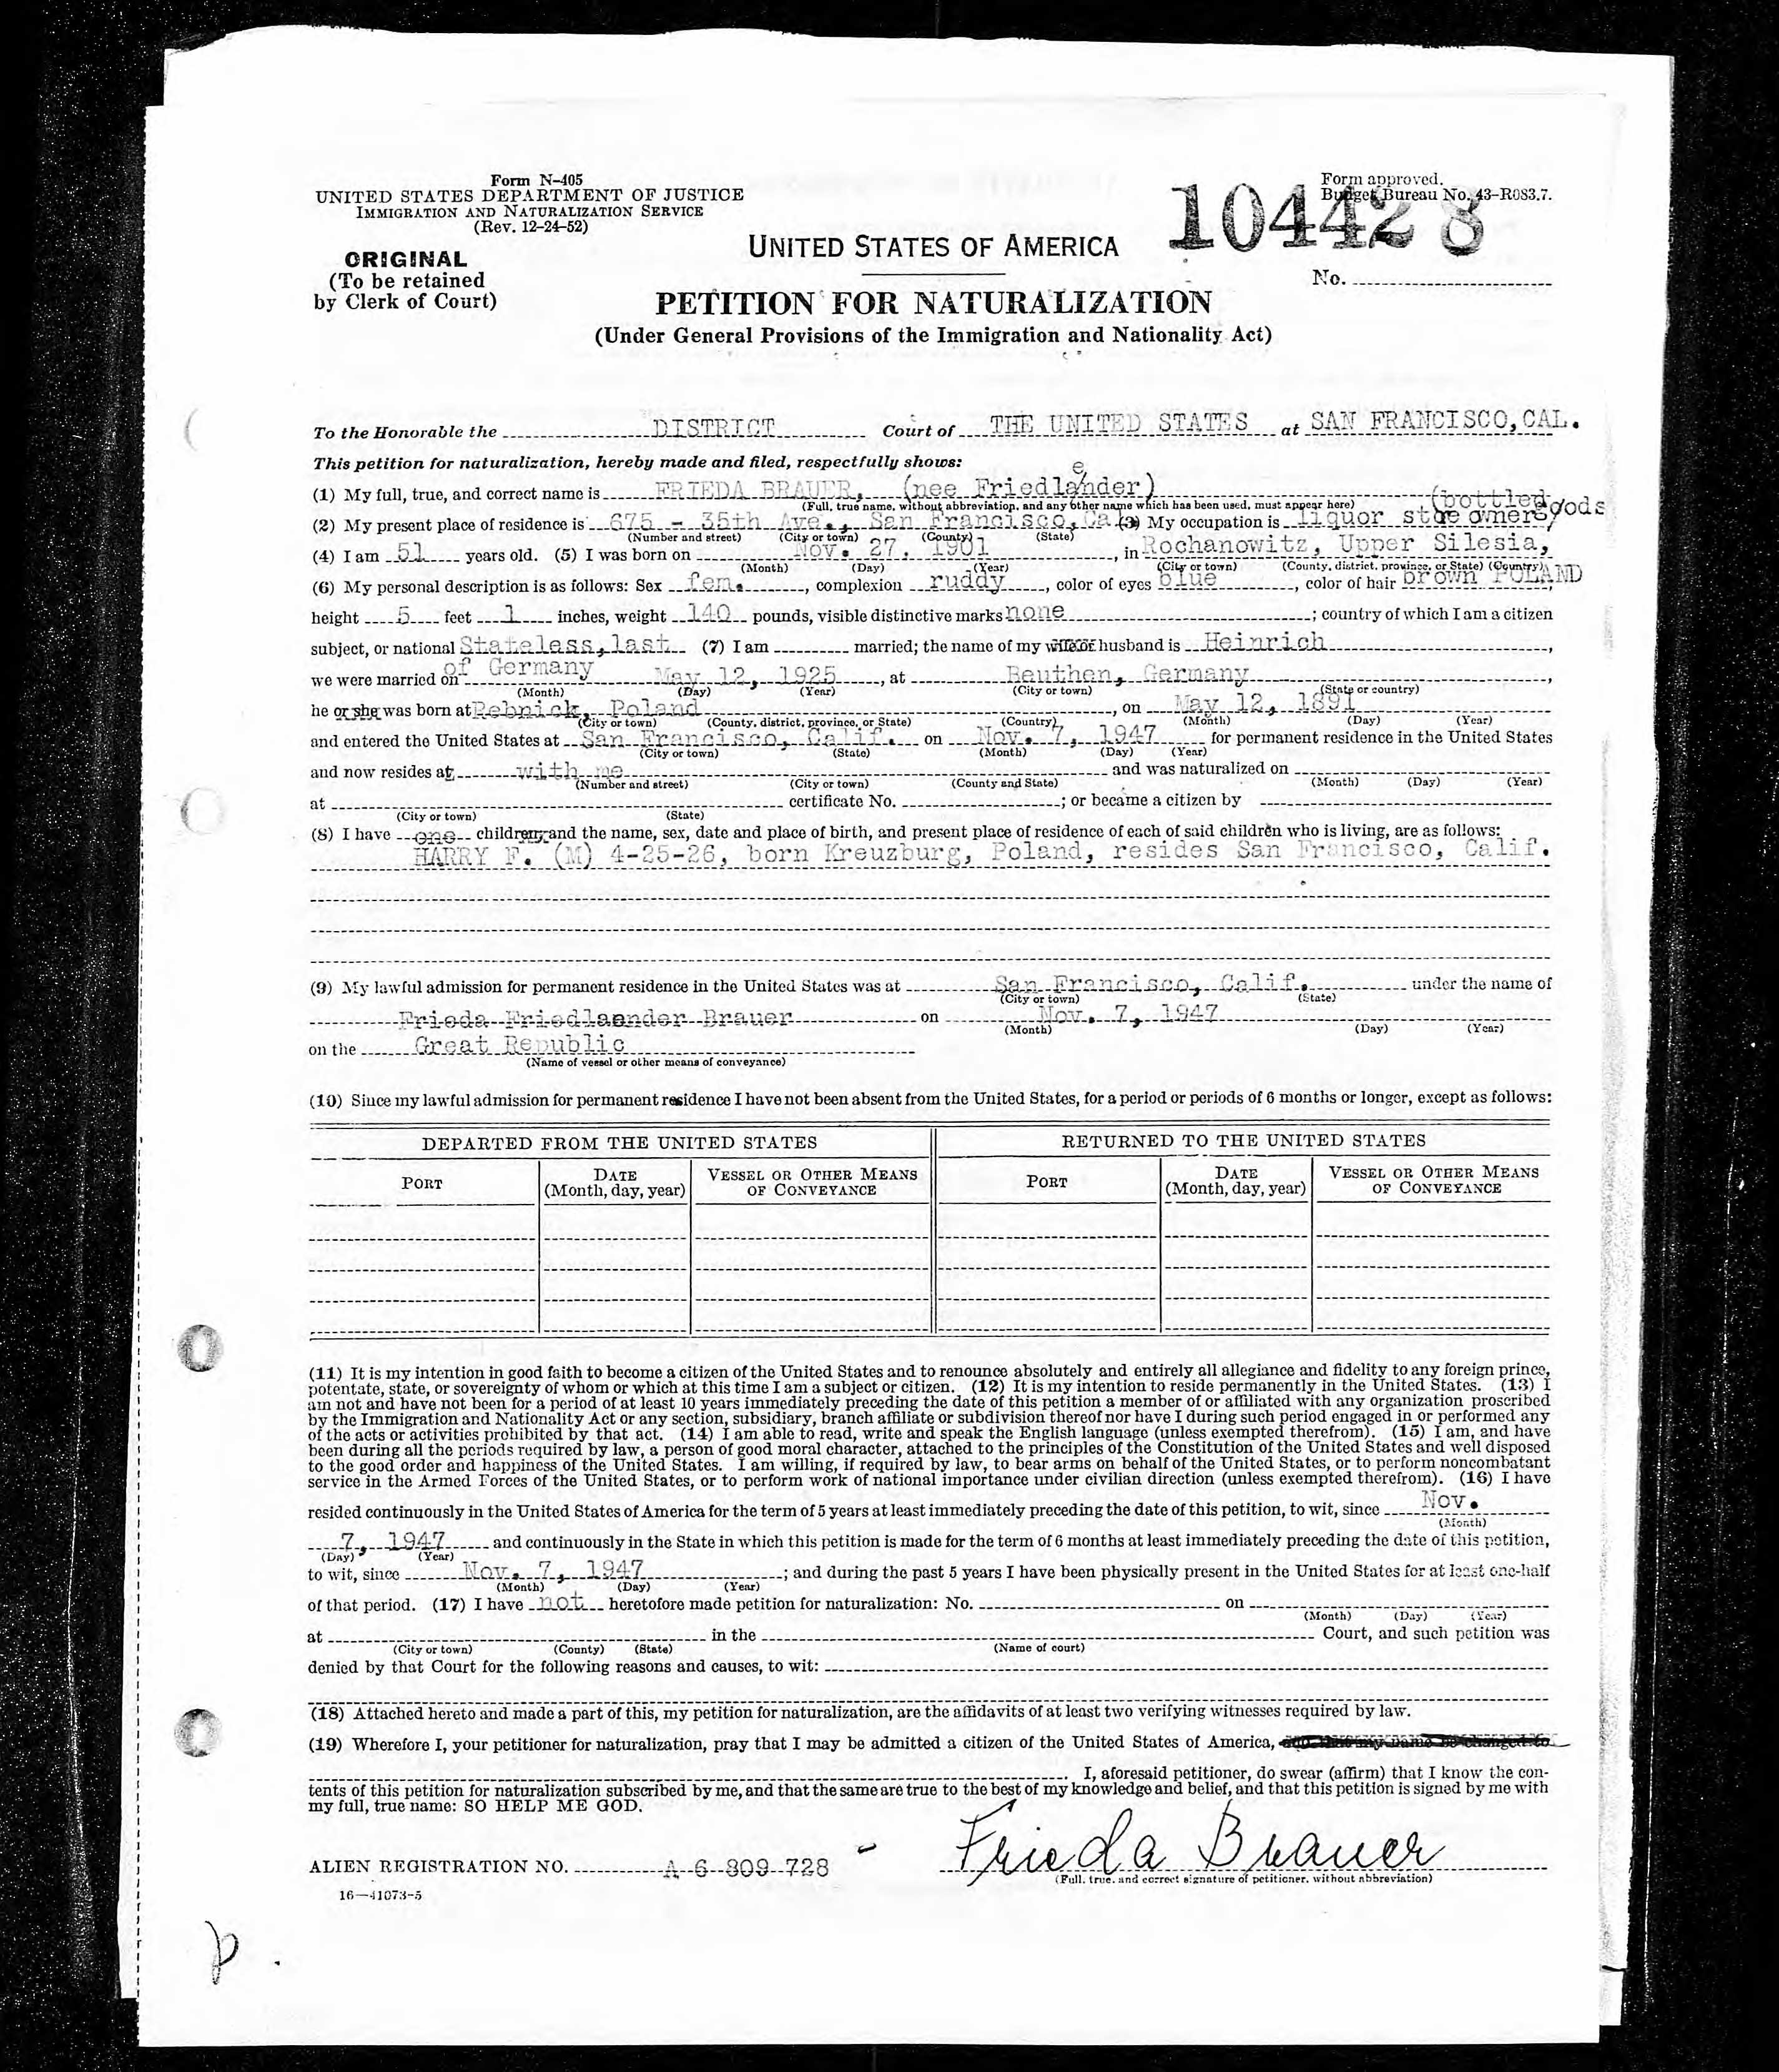 Form N-405
UNITED STATES DEPARTMENT OF JUSTICE
IMMIGRATION AND NATURALIZATION SERVICE
(Rev. 12-24-52)
ORIGINAL
(To be retained
by Clerk of Court)
Form approved.
Budget Bureau No. 43-R083.7.
104428
No.
UNITED STATES OF AMERICA
PETITION FOR NATURALIZATION
(Under General Provisions of the Immigration and Nationality Act)
To the Honorable the DISTRICT Court of THE UNITED STATES at SAN FRANCISCO, CAL.
This petition for naturalization, hereby made and filed, respectfully shows:
e
(1) My full, true, and correct name is FRIEDA BRAUER, (nee Friedlander)
(Full, true name, without abbreviation, and any other name which has been used, must appear here) (bottled goods
(2) My present place of residence is 675 - 35th Ave., San Francisco, Ca (3) My occupation is liquor store owners
(Number and street) (City or town) (County) (State)
(4) I am 51 years old. (5) I was born on Nov. 27, 1901, in Rochanowitz, Upper Silesia,
(Month) (Day) (Year) (City or town) (County, district, province, or State) (Country)
(6) My personal description is as follows: Sex fem., complexion ruddy, color of eyes blue, color of hair brown POLAND
height 5 feet 1 inches, weight 140 pounds, visible distinctive marks none; country of which I am a citizen
subject, or national Stateless, last (7) I am married; the name of my wife or husband is Heinrich,
of Germany
we were married on May 12, 1925, at Beuthen, Germany,
(Month) (Day) (Year) (City or town) (State or country)
he or she was born at Rebnick, Poland, on May 12, 1891
(City or town) (County, district, province, or State) (Country) (Month) (Day) (Year)
and entered the United States at San Francisco, Calif. on Nov. 7, 1947 for permanent residence in the United States
(City or town) (State) (Month) (Day) (Year)
and now resides at with me and was naturalized on
(Number and street) (City or town) (County and State) (Month) (Day) (Year)
at certificate No. ; or became a citizen by
(City or town) (State)
(8) I have one children, and the name, sex, date and place of birth, and present place of residence of each of said children who is living, are as follows:
HARRY F. (M) 4-25-26, born Kreuzburg, Poland, resides San Francisco, Calif.
(9) My lawful admission for permanent residence in the United States was at San Francisco, Calif. under the name of
(City or town) (State)
Frieda Friedlaender Brauer on Nov. 7, 1947
(Month) (Day) (Year)
on the Great Republic
(Name of vessel or other means of conveyance)
(10) Since my lawful admission for permanent residence I have not been absent from the United States, for a period or periods of 6 months or longer, except as follows:
DEPARTED FROM THE UNITED STATES RETURNED TO THE UNITED STATES
PORT DATE (Month, day, year) VESSEL OR OTHER MEANS OF CONVEYANCE PORT DATE (Month, day, year) VESSEL OR OTHER MEANS OF CONVEYANCE
(11) It is my intention in good faith to become a citizen of the United States and to renounce absolutely and entirely all allegiance and fidelity to any foreign prince,
potentate, state, or sovereignty of whom or which at this time I am a subject or citizen. (12) It is my intention to reside permanently in the United States. (13) I
am not and have not been for a period of at least 10 years immediately preceding the date of this petition a member of or affiliated with any organization proscribed
by the Immigration and Nationality Act or any section, subsidiary, branch affiliate or subdivision thereof nor have I during such period engaged in or performed any
of the acts or activities prohibited by that act. (14) I am able to read, write and speak the English language (unless exempted therefrom). (15) I am, and have
been during all the periods required by law, a person of good moral character, attached to the principles of the Constitution of the United States and well disposed
to the good order and happiness of the United States. I am willing, if required by law, to bear arms on behalf of the United States, or to perform noncombatant
service in the Armed Forces of the United States, or to perform work of national importance under civilian direction (unless exempted therefrom). (16) I have
resided continuously in the United States of America for the term of 5 years at least immediately preceding the date of this petition, to wit, since Nov.
(Month)
7, 1947 and continuously in the State in which this petition is made for the term of 6 months at least immediately preceding the date of this petition,
(Day) (Year)
to wit, since Nov. 7, 1947; and during the past 5 years I have been physically present in the United States for at least one-half
(Month) (Day) (Year)
of that period. (17) I have not heretofore made petition for naturalization: No. on
(Month) (Day) (Year)
at in the Court, and such petition was
(City or town) (County) (State) (Name of court)
denied by that Court for the following reasons and causes, to wit:
(18) Attached hereto and made a part of this, my petition for naturalization, are the affidavits of at least two verifying witnesses required by law.
(19) Wherefore I, your petitioner for naturalization, pray that I may be admitted a citizen of the United States of America, and that my name be changed to
I, aforesaid petitioner, do swear (affirm) that I know the con-
tents of this petition for naturalization subscribed by me, and that the same are true to the best of my knowledge and belief, and that this petition is signed by me with
my full, true name: SO HELP ME GOD.
Frieda Brauer
ALIEN REGISTRATION NO. A 6 809 728
(Full, true, and correct signature of petitioner, without abbreviation)
16—41073-5